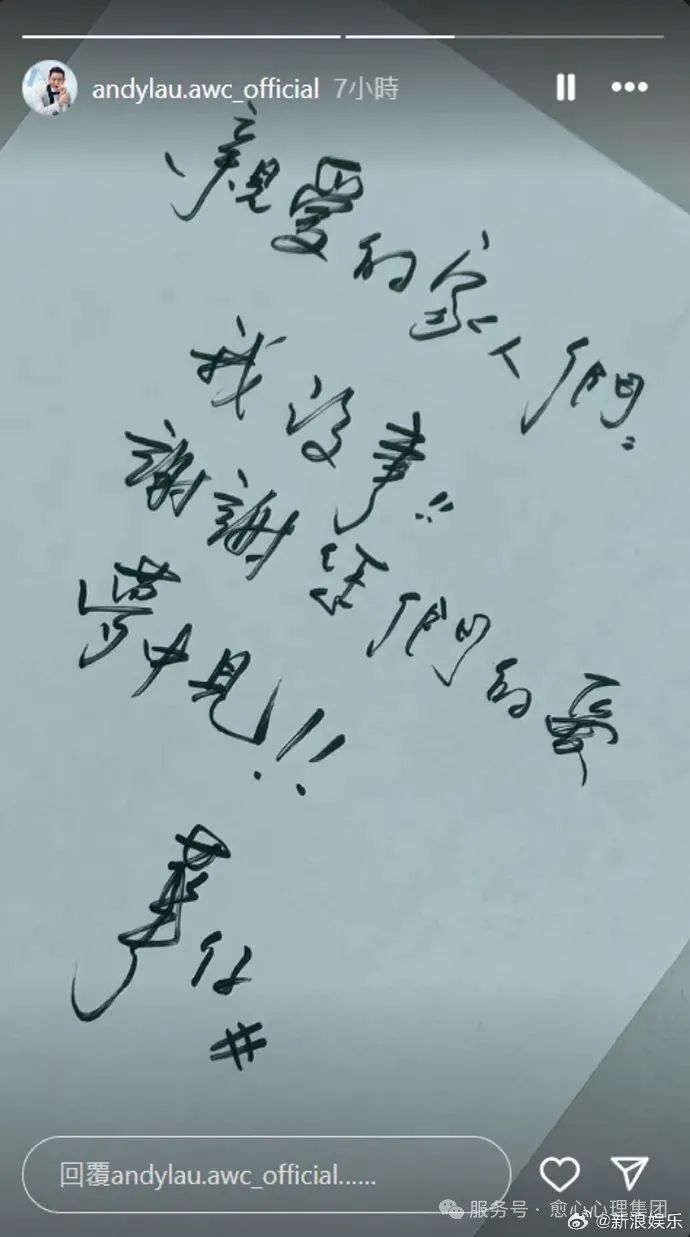 andylau.awc_official 7小時
親愛的家人們:
我沒事!!
謝謝你們的愛
夢中見!!
華仔
#
回覆andylau.awc_official......
服务号 · 愈心心理集团
@新浪娱乐